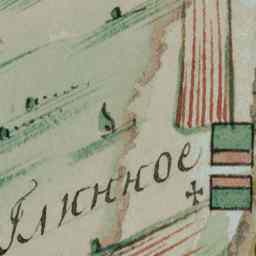 Глинное